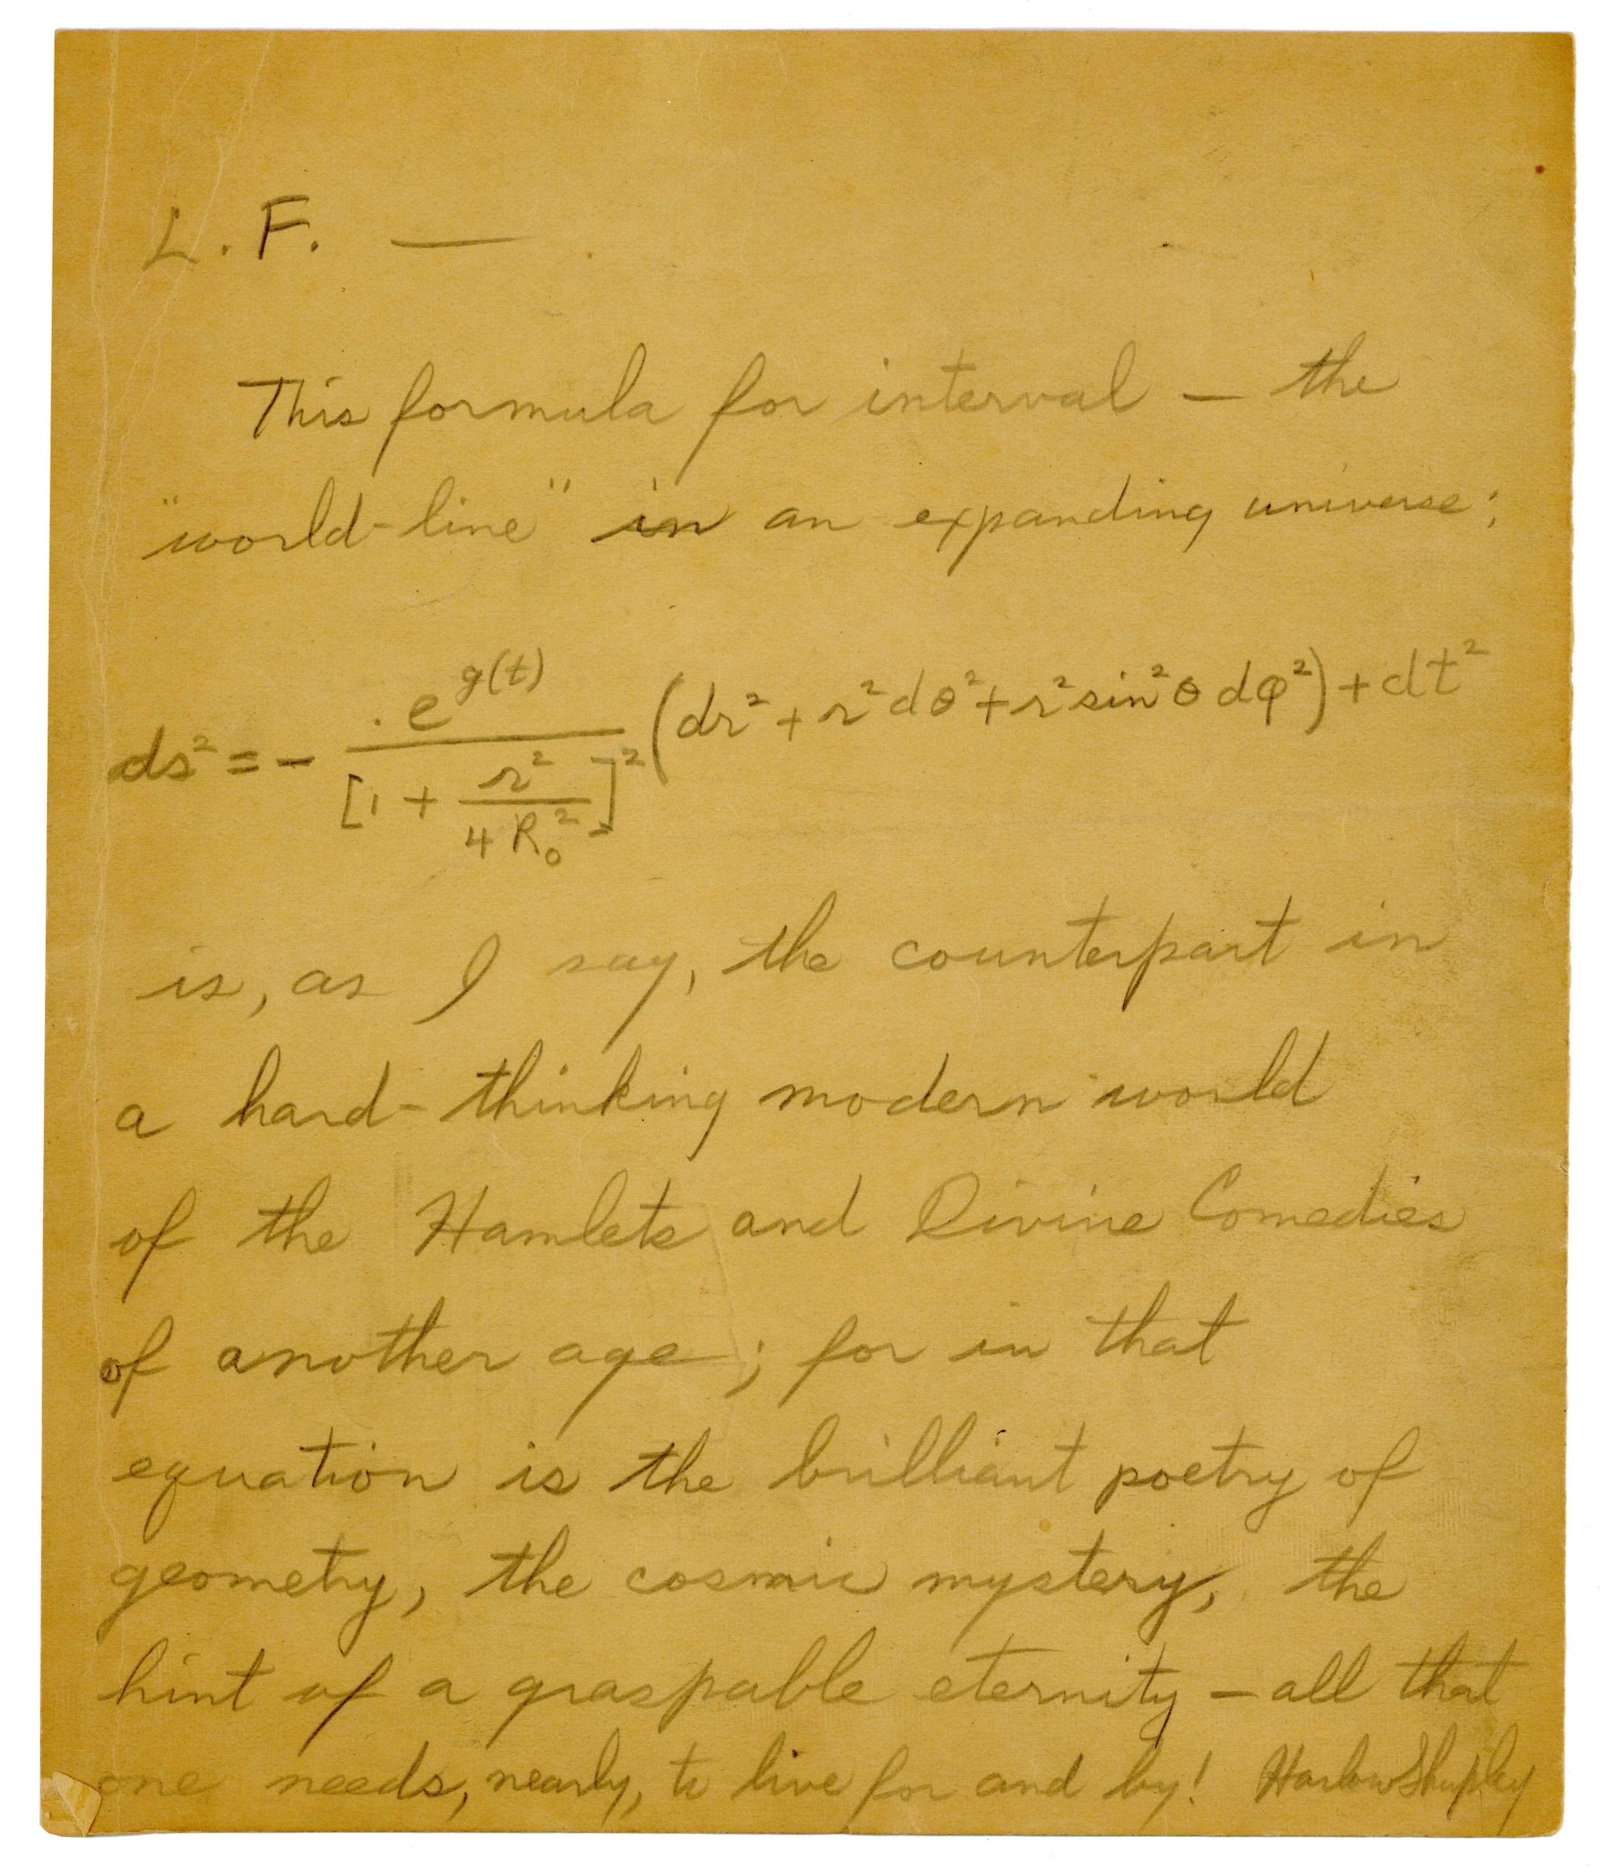 L. F. —
This formula for interval — the
"world-line" in an expanding universe:
ds² = - e^{g(t)} / [1 + r²/4R₀²]² (dr² + r²dθ² + r²sin²θ dφ²) + dt²
is, as I say, the counterpart in
a hard-thinking modern world
of the Hamlets and Divine Comedies
of another age; for in that
equation is the brilliant poetry of
geometry, the cosmic mystery, the
hint of a graspable eternity — all that
one needs, nearly, to live for and by! Harlow Shapley